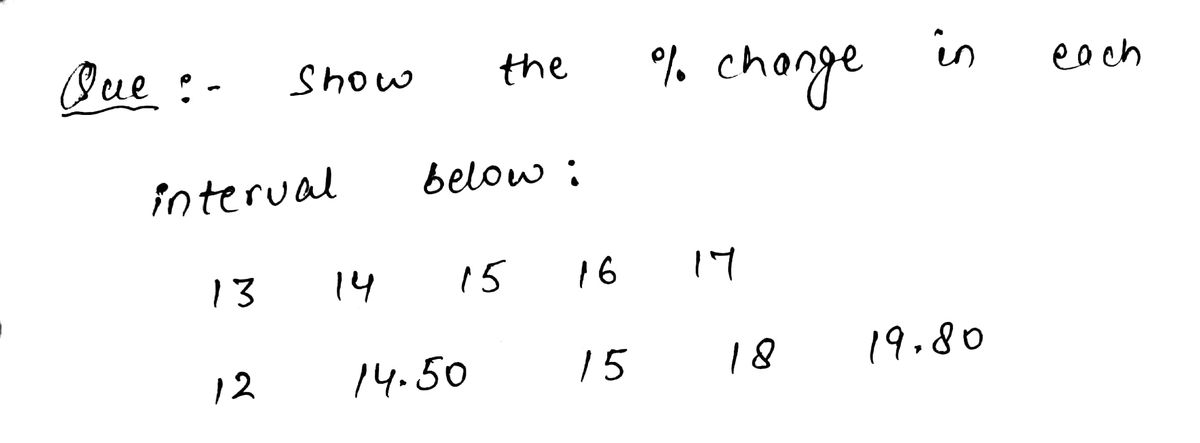 Que :- Show the % change in each
interval below :
13 14 15 16 17
12 14.50 15 18 19.80